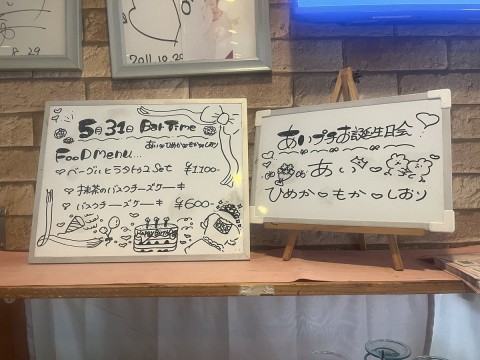 .8.29
2011.10.2
5月31日 Bar Time
あい♡ひめか♡もか♡しおり
FooD menu...
♡ ベーグルとラタトゥユ Set ¥1100-
♡ 抹茶のバスクチーズケーキ
♡ バスクチーズケーキ ¥600-
HAPPY BIRTHDAY
あいプチお誕生日会!
あい♡
ひめか♡もか♡しおり